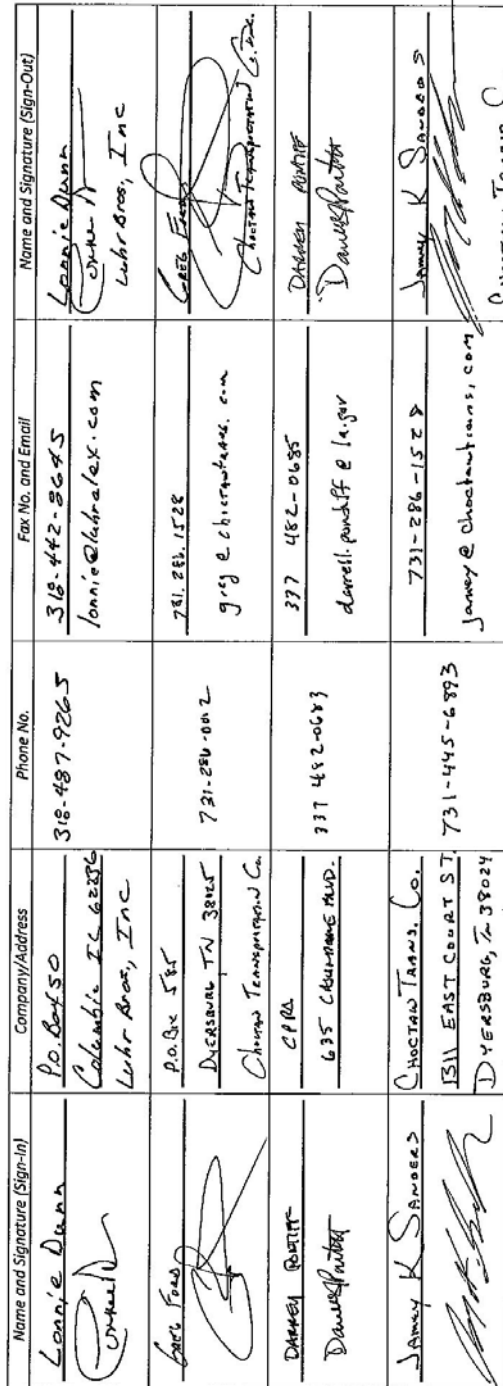 Name and Signature (Sign-In)
Company/Address
Phone No.
Fax No. and Email
Name and Signature (Sign-Out)
Lonnie Dunn
P.O. Box 50
Columbia IL 62236
Luhr Bros, Inc
318-487-9265
318-442-8645
lonnie@luhralex.com
Lonnie Dunn
Luhr Bros, Inc
Greg Ford
P.O. Box 585
Dyersburg TN 38025
Choctaw Transportation Co.
731-286-0012
731.286.1528
greg@choctawtrans.com
Greg Ford
Choctaw Transportation Co. Inc.
Darrell Pontiff
CPRA
635 Cajundome Blvd.
337 482-0683
337 482-0685
darrell.pontiff@la.gov
Darrell Pontiff
Jamey K Sanders
Choctaw Trans. Co.
1311 East Court St.
Dyersburg, Tn 38024
731-445-6893
731-286-1528
jamey@choctawtrans.com
Jamey K Sanders